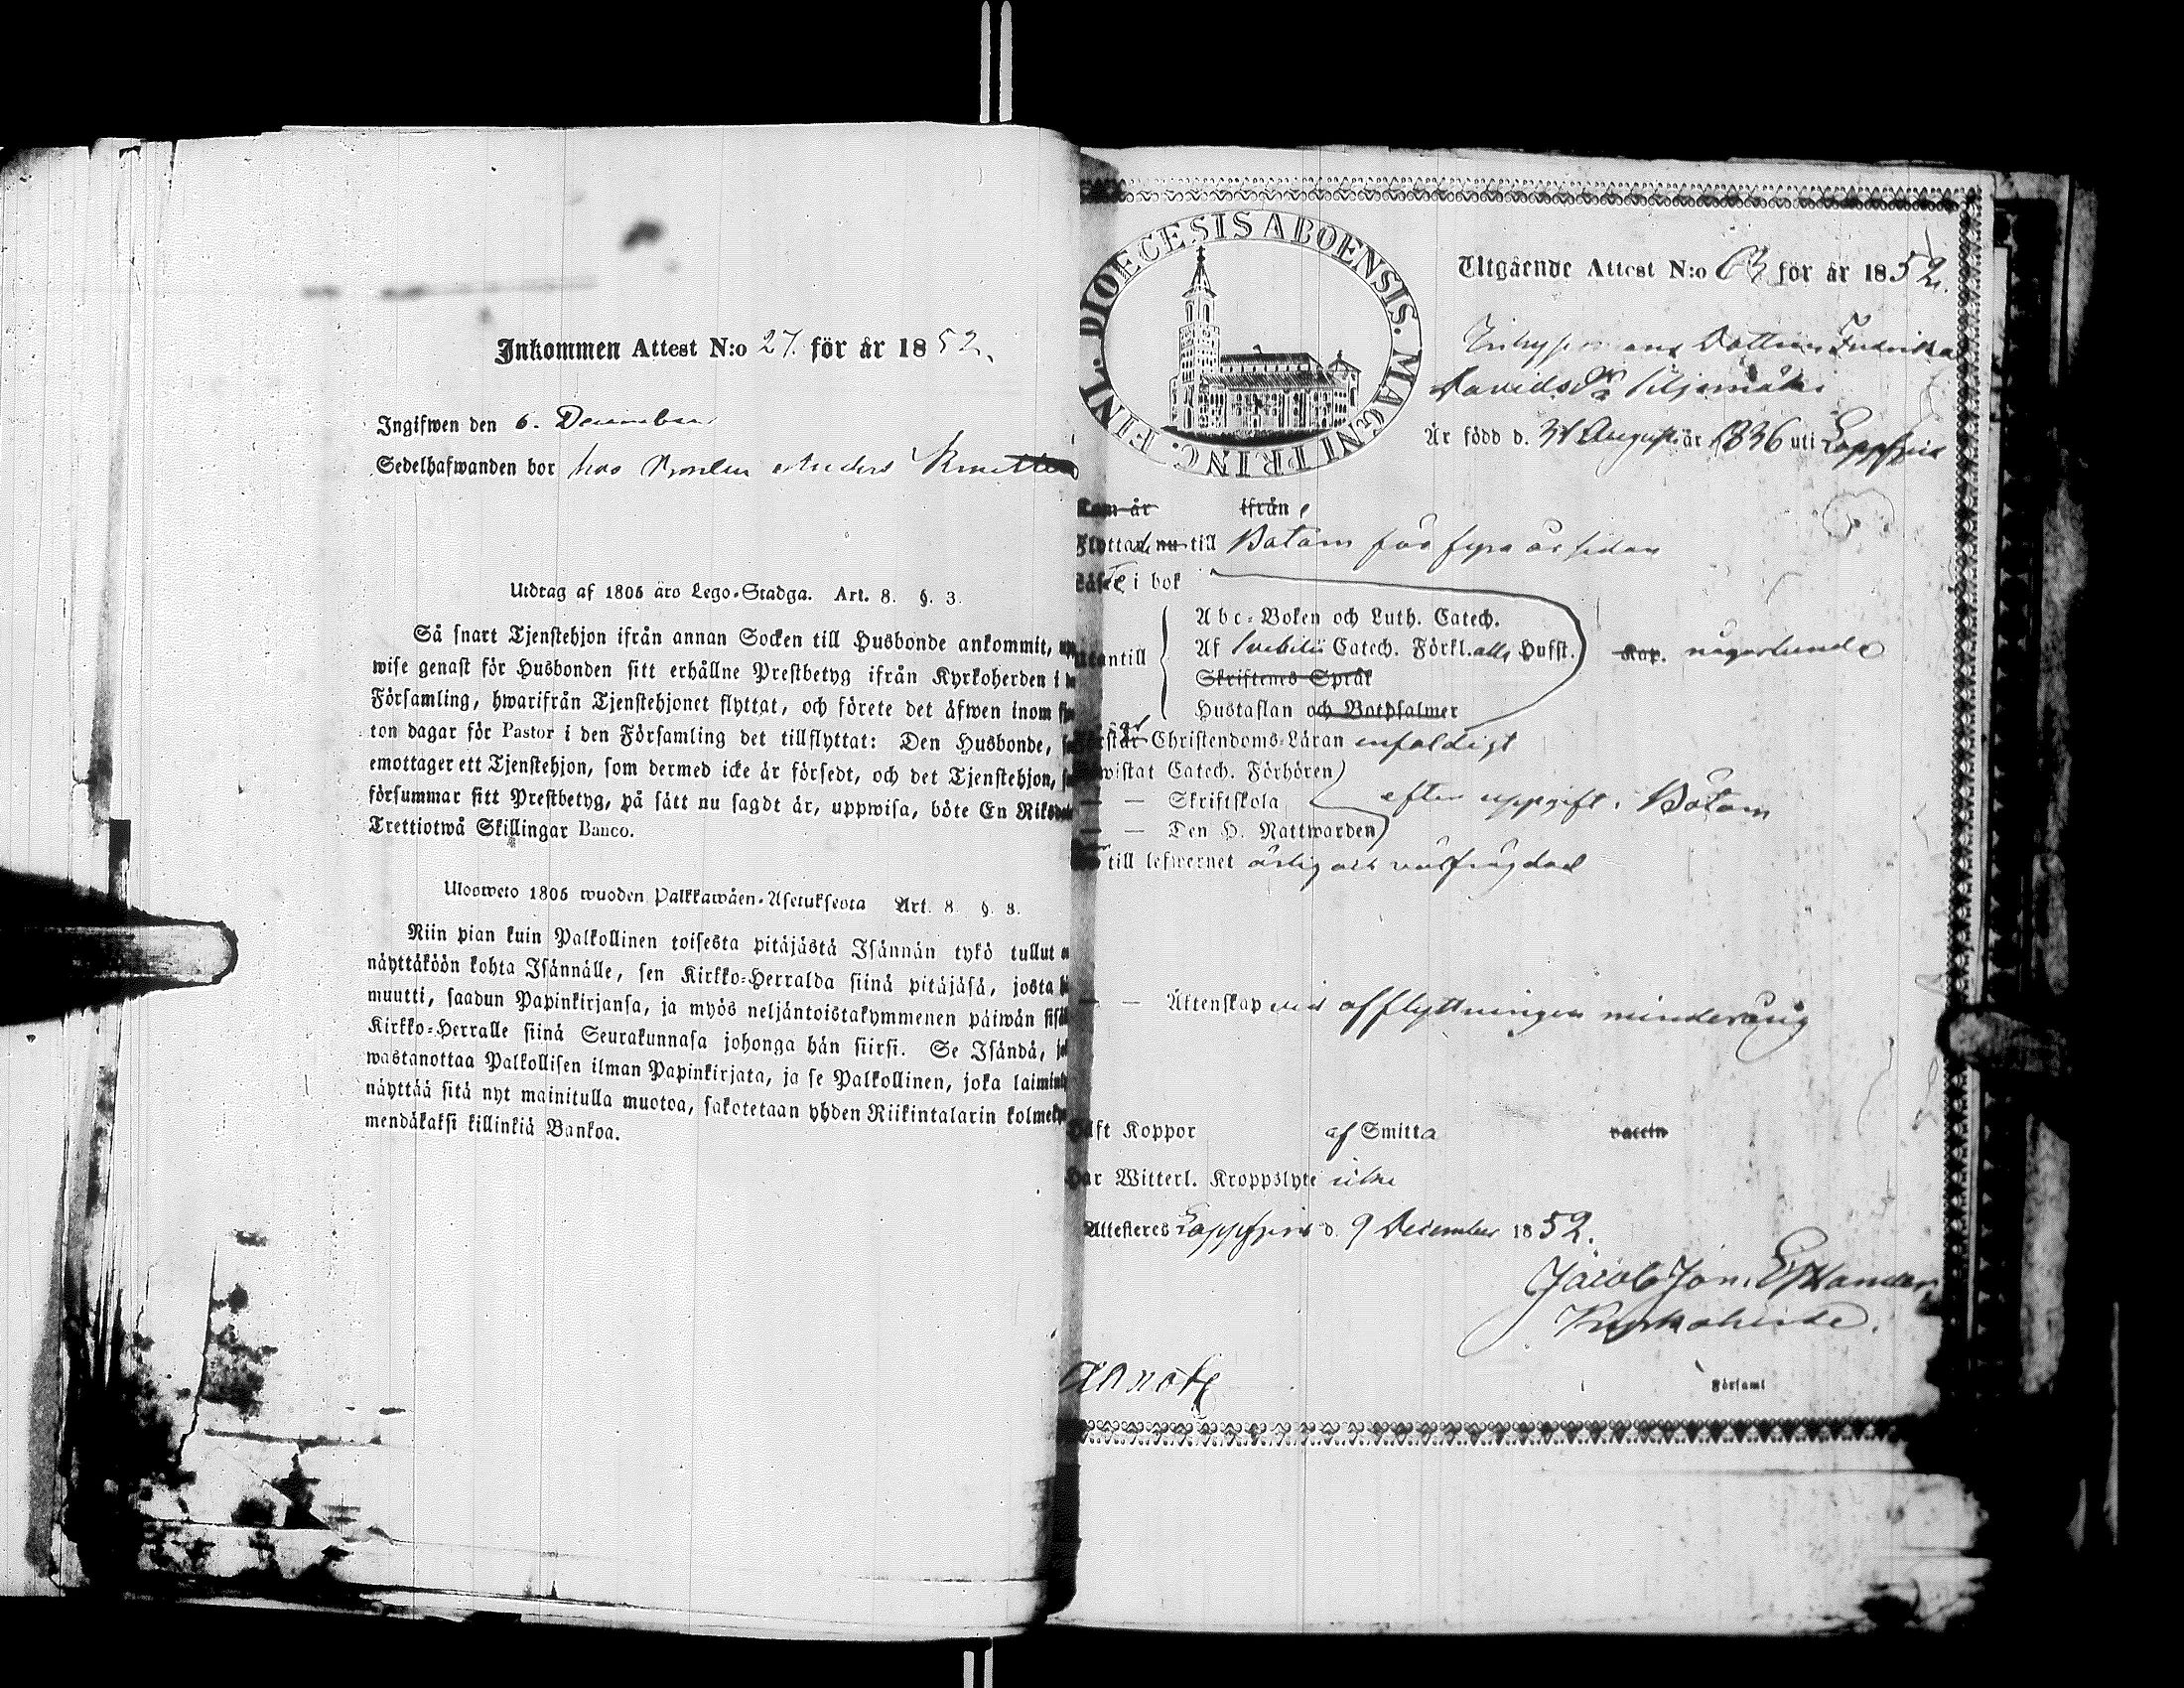 Inkommen Attest N:o 27. för år 1852.
Ingifwen den 6. December
Sedelhafwanden bor hos Anders
Utdrag af 1805 års Lego-Stadga. Art. 8. §. 3.
Så snart Tjenstehjon ifrån annan Socken till Husbonde ankommit,
wise genast för Husbonden sitt erhållne Prestbetyg ifrån Kyrkoherden i
Församling, hwarifrån Tjenstehjonet flyttat, och förete det äfwen inom
ton dagar för Pastor i den Församling det tillflyttat: Den Husbonde,
emottager ett Tjenstehjon, som dermed icke är försedt, och det Tjenstehjon,
försummar sitt Prestbetyg, på sätt nu sagdt är, uppwisa, böte En
Trettiotwå Skillingar Banco.
Ulosweto 1805 wuoden Palkkawäen-Asetuksesta Art. 8. §. 3.
Niin pian kuin Palkollinen toisesta pitäjästä Isännän tykö tullut
näyttäköön kohta Isännälle, sen Kirkko-Herralda siinä pitäjäsä, josta
muutti, saadun Papinkirjansa, ja myös neljäntoistakymmenen päiwän
Kirkko-Herralle siinä Seurakunnasa johonga hän siirsi. Se Isändä,
wastanottaa Palkollisen ilman Papinkirjata, ja se Palkollinen, joka
näyttää sitä nyt mainitulla muotoa, sakotetaan yhden Riikintalarin
mendäkaksi killinkiä Bankoa.
FINL. DIOECESIS ABOENSIS. MAGNI PRINC.
Utgående Attest N:o 63 för år 1852.
Dottren Fredrika
Davidsdr Siljamäki
Är född d. 31 August år 1836 uti Lappfjerd
Kom år ifrån
Flyttade nu till Båtom för fyra år sedan
Läste i bok
Utantill
Abc-Boken och Luth. Catech.
Af Svebilii Catech. Förkl. alla Hufst. Kap. någorlunda
Skriftenes Språk
Hustaflan och Botpsalmer
Christendoms-Läran enfaldigt
Catech. Förhören
— — Skriftskola efter uppgift i Båtom
— — Den H. Nattwarden
till lefwernet ärlig och
— — Äktenskap vid afflyttningen minderårig
Haft Koppor af Smitta vaccin
Har Witterl. Kroppslyte icke
Attesteras Lappfjerd d. 9 December 1852.
Jacob Jon. Estlander,
Kyrkoherde.
Församl